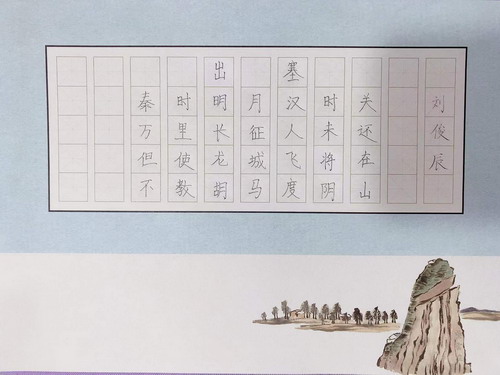 出塞
秦时明月汉时关
万里长征人未还
但使龙城飞将在
不教胡马度阴山
刘俊辰